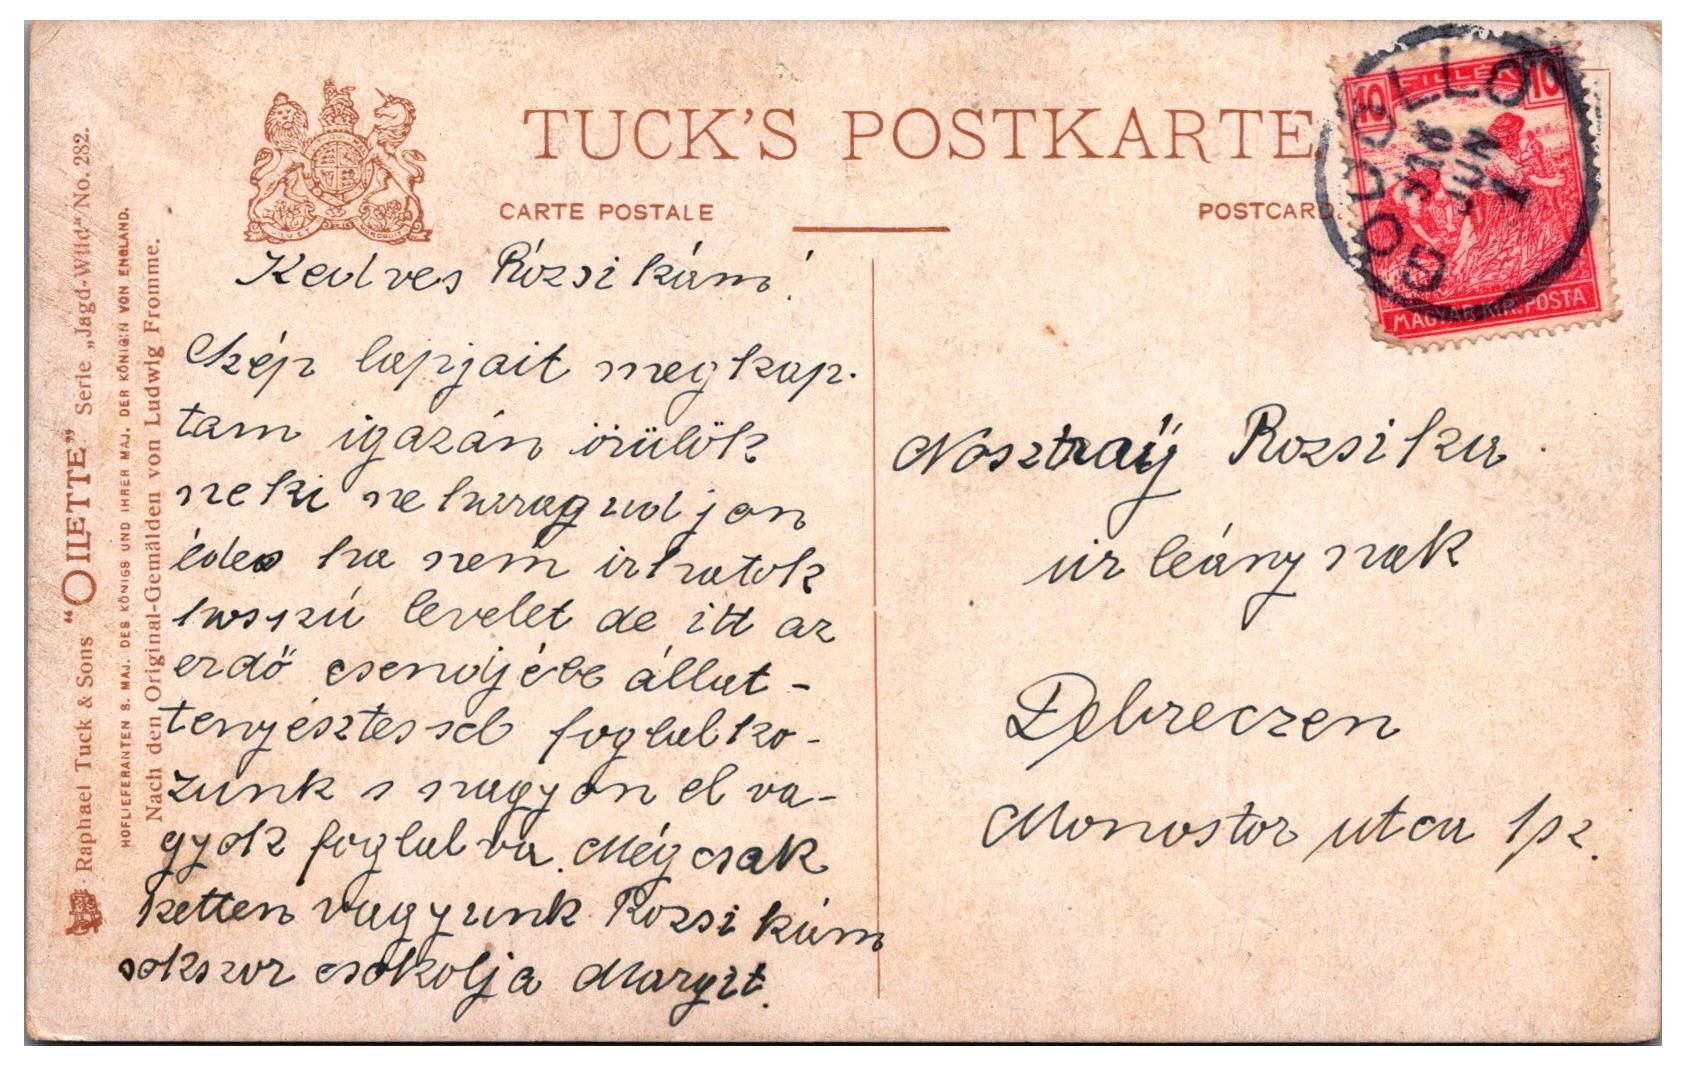 TUCK'S POSTKARTE
CARTE POSTALE
POSTCARD.
Raphael Tuck & Sons "OILETTE" Serie „Jagd-Wild" No. 282.
HOFLIEFERANTEN S. MAJ. DES KÖNIGS UND IHRER MAJ. DER KÖNIGIN VON ENGLAND.
Nach den Original-Gemälden von Ludwig Fromme.
10 FILLÉR 10
MAGYAR KIR. POSTA
GÖDÖLLŐ
916
JUN
1
Kedves Rózsikám!
Szép lapjait megkap-
tam igazán örülök
neki ne haragudjon
édes ha nem irhatok
hosszú levelet de itt az
erdő csendjébe állat-
tenyésztéssel foglalko-
zunk s nagyon el va-
gyok foglalva. Még csak
ketten vagyunk Rozsikám
sokszor csokolja Margit.
Nosztraÿ Rozsika
úr leánynak
Debreczen
Monostor utca 1 sz.